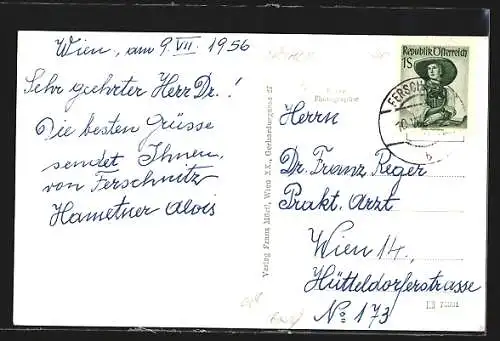 Wien, am 9. VII. 1956
Sehr geehrter Herr Dr. !
Die besten Grüsse
sendet Ihnen
von Ferschnitz
Hametner Alois
Verlag Franz Mörtl, Wien XX., Gerhardusgasse 27
Photographie
Republik Österreich
1S
FERSCH
Herrn
Dr. Franz Reger
Prakt. Arzt
Wien 14.,
Hütteldorferstrasse
No 173